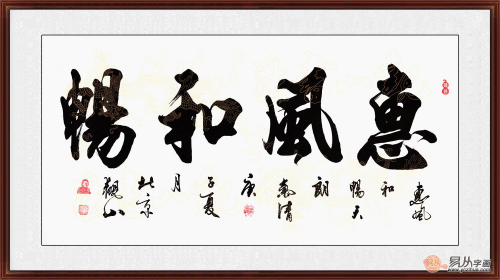 惠風和暢
惠風
和
暢天
朗
氣清
庚
子夏
月
北京
觀山
易从字画